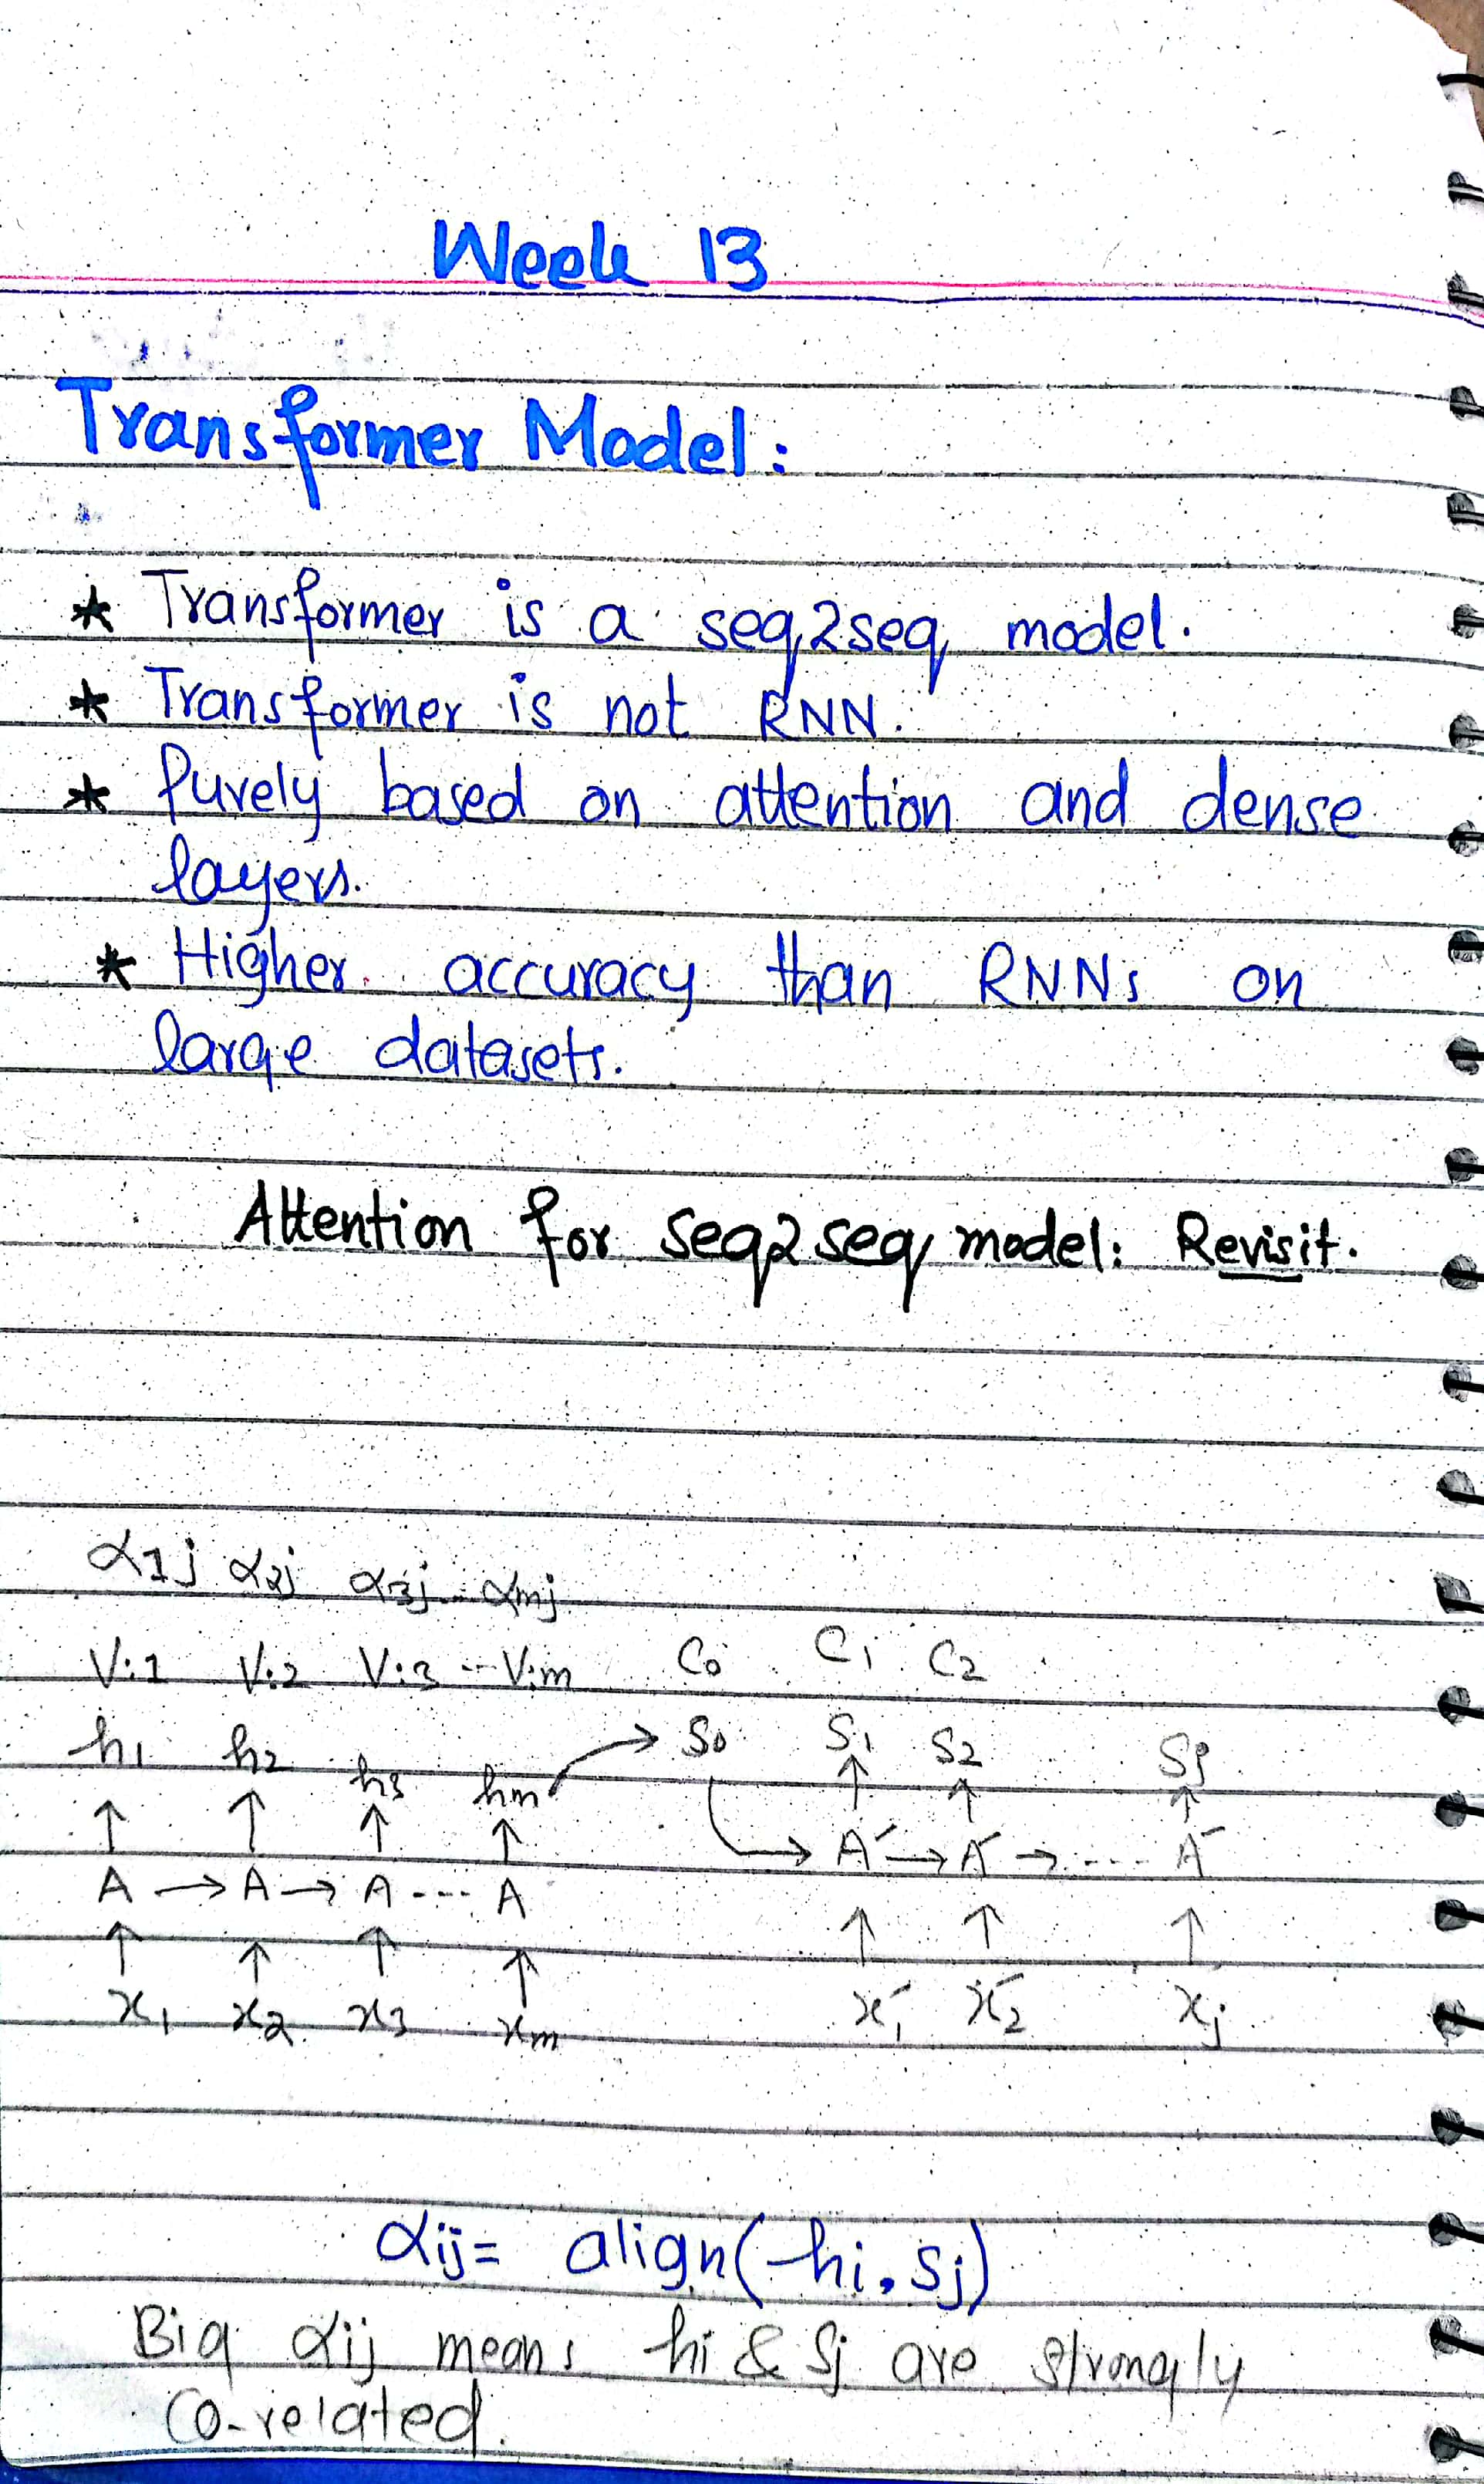 Week 13
Transformer Model:
* Transformer is a seq2seq model.
* Transformer is not RNN.
* Purely based on attention and dense
layers.
* Higher accuracy than RNNs on
large datasets.
Attention for seq2seq model: Revisit.
α1j α2j α3j ... αmj
V:1 V:2 V:3 ... V:m C0 C1 C2
h1 h2 h3 hm → S0 S1 S2 Sj
↑ ↑ ↑ ↑ ↑ ↑ ↑
A → A → A ---- A → A′ → A′ → ---- A′
↑ ↑ ↑ ↑ ↑ ↑ ↑
x1 x2 x3 xm x′1 x′2 xj
αij = align(hi, sj)
Big αij means hi & Sj are strongly
co-related.